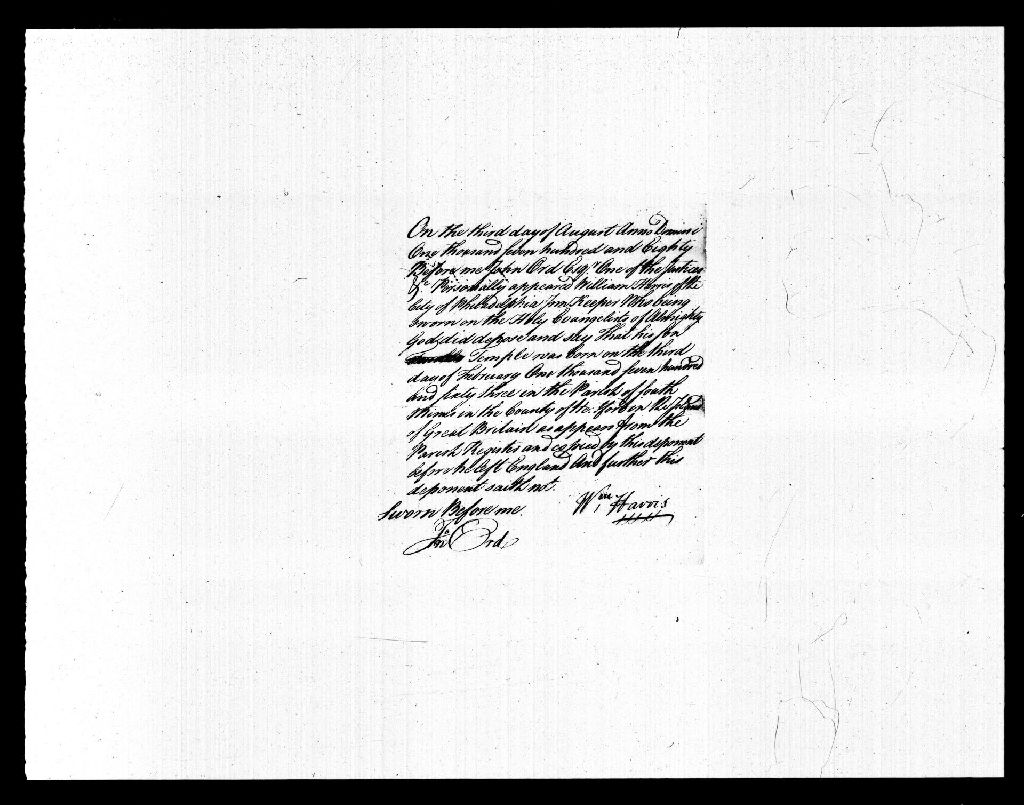 On the third day of August Anno Domini
One thousand seven hundred and Eighty
Before me John Ord Esqr One of the Justices
&c Personally appeared William Harris of the
City of Philadelphia Inn Keeper Who being
sworn on the Holy Evangelists of Almighty
God did depose and say That his son
Temple was born on the third
day of February One thousand seven hundred
and sixty three in the Parish of South
in the County of in the Island
of Great Britain as appears from the
Parish Register and by this deponent
before he left England And further this
deponent saith not.
Sworn Before me. Wm Harris
Jno Ord